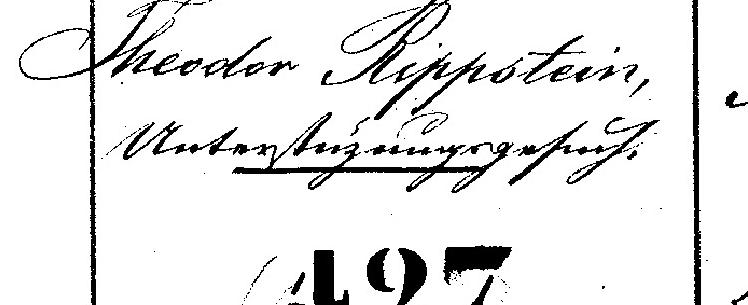 Theodor Rippstein,
Unterstüzungsgesuch.
427